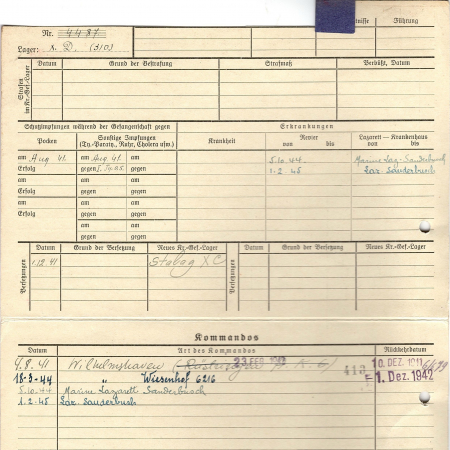 Nr. 4487
Führung
Lager: X. D. (310)
Strafen im Kr.-Gef.-Lager
Datum Grund der Bestrafung Strafmaß Verbüßt, Datum
Schutzimpfungen während der Gefangenschaft gegen Erkrankungen
Pocken Sonstige Impfungen (Ty.-Paraty., Ruhr, Cholera usw.) Krankheit Revier von bis Lazarett – Krankenhaus von bis
am Aug 41. am Aug 41. 5.10.44. Marine Laz. Sanderbusch
Erfolg gegen 1-2-45 Laz. Sanderbusch
am am
Erfolg gegen
am am
Erfolg gegen
am
gegen
am
gegen
Versetzungen Datum Grund der Versetzung Neues Kr.-Gef.-Lager Versetzungen Datum Grund der Versetzung Neues Kr.-Gef.-Lager
1.12.41 Stalag X C
Kommandos
Datum Art des Kommandos Rückkehrdatum
9.8.41 Wilhelmshaven 23 FEB 413 10. DEZ. 1941
18-9-44 " Wiesenhof 6216 1. Dez. 1942
5.10.44 Marine Lazarett Sanderbusch
1.2.45 Laz. Sanderbusch